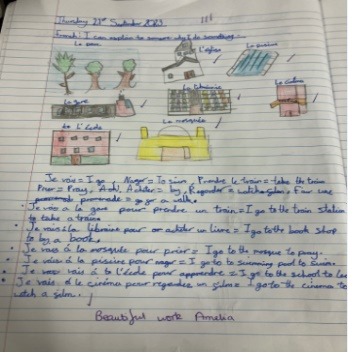 Thursday 21st September 2023
French: I can explain to someone why I do something.
Le parc
L'église
La piscine
La gare
La librairie
Le cinéma
L'école
La mosquée
Je vais = I go, Nager = To swim, Prendre le train = take the train
Prier = Pray, Acheter = by, Regarder = watch a film, Faire une
promenade = go for a walk.
Je vais à la gare pour prendre un train = I go to the train station
to take a train
Je vais à la librairie pour acheter un livre = I go to the book shop
to by a book
Je vais à la mosquée pour prier = I go to the mosque to pray.
Je vais à la piscine pour nager = I go to to swimming pool to swim.
Je vais à l'école pour apprendre = I go to the school to le
Je vais à le cinéma pour regarder un film = I go to the cinema to
watch a film.
Beautiful work Amelia